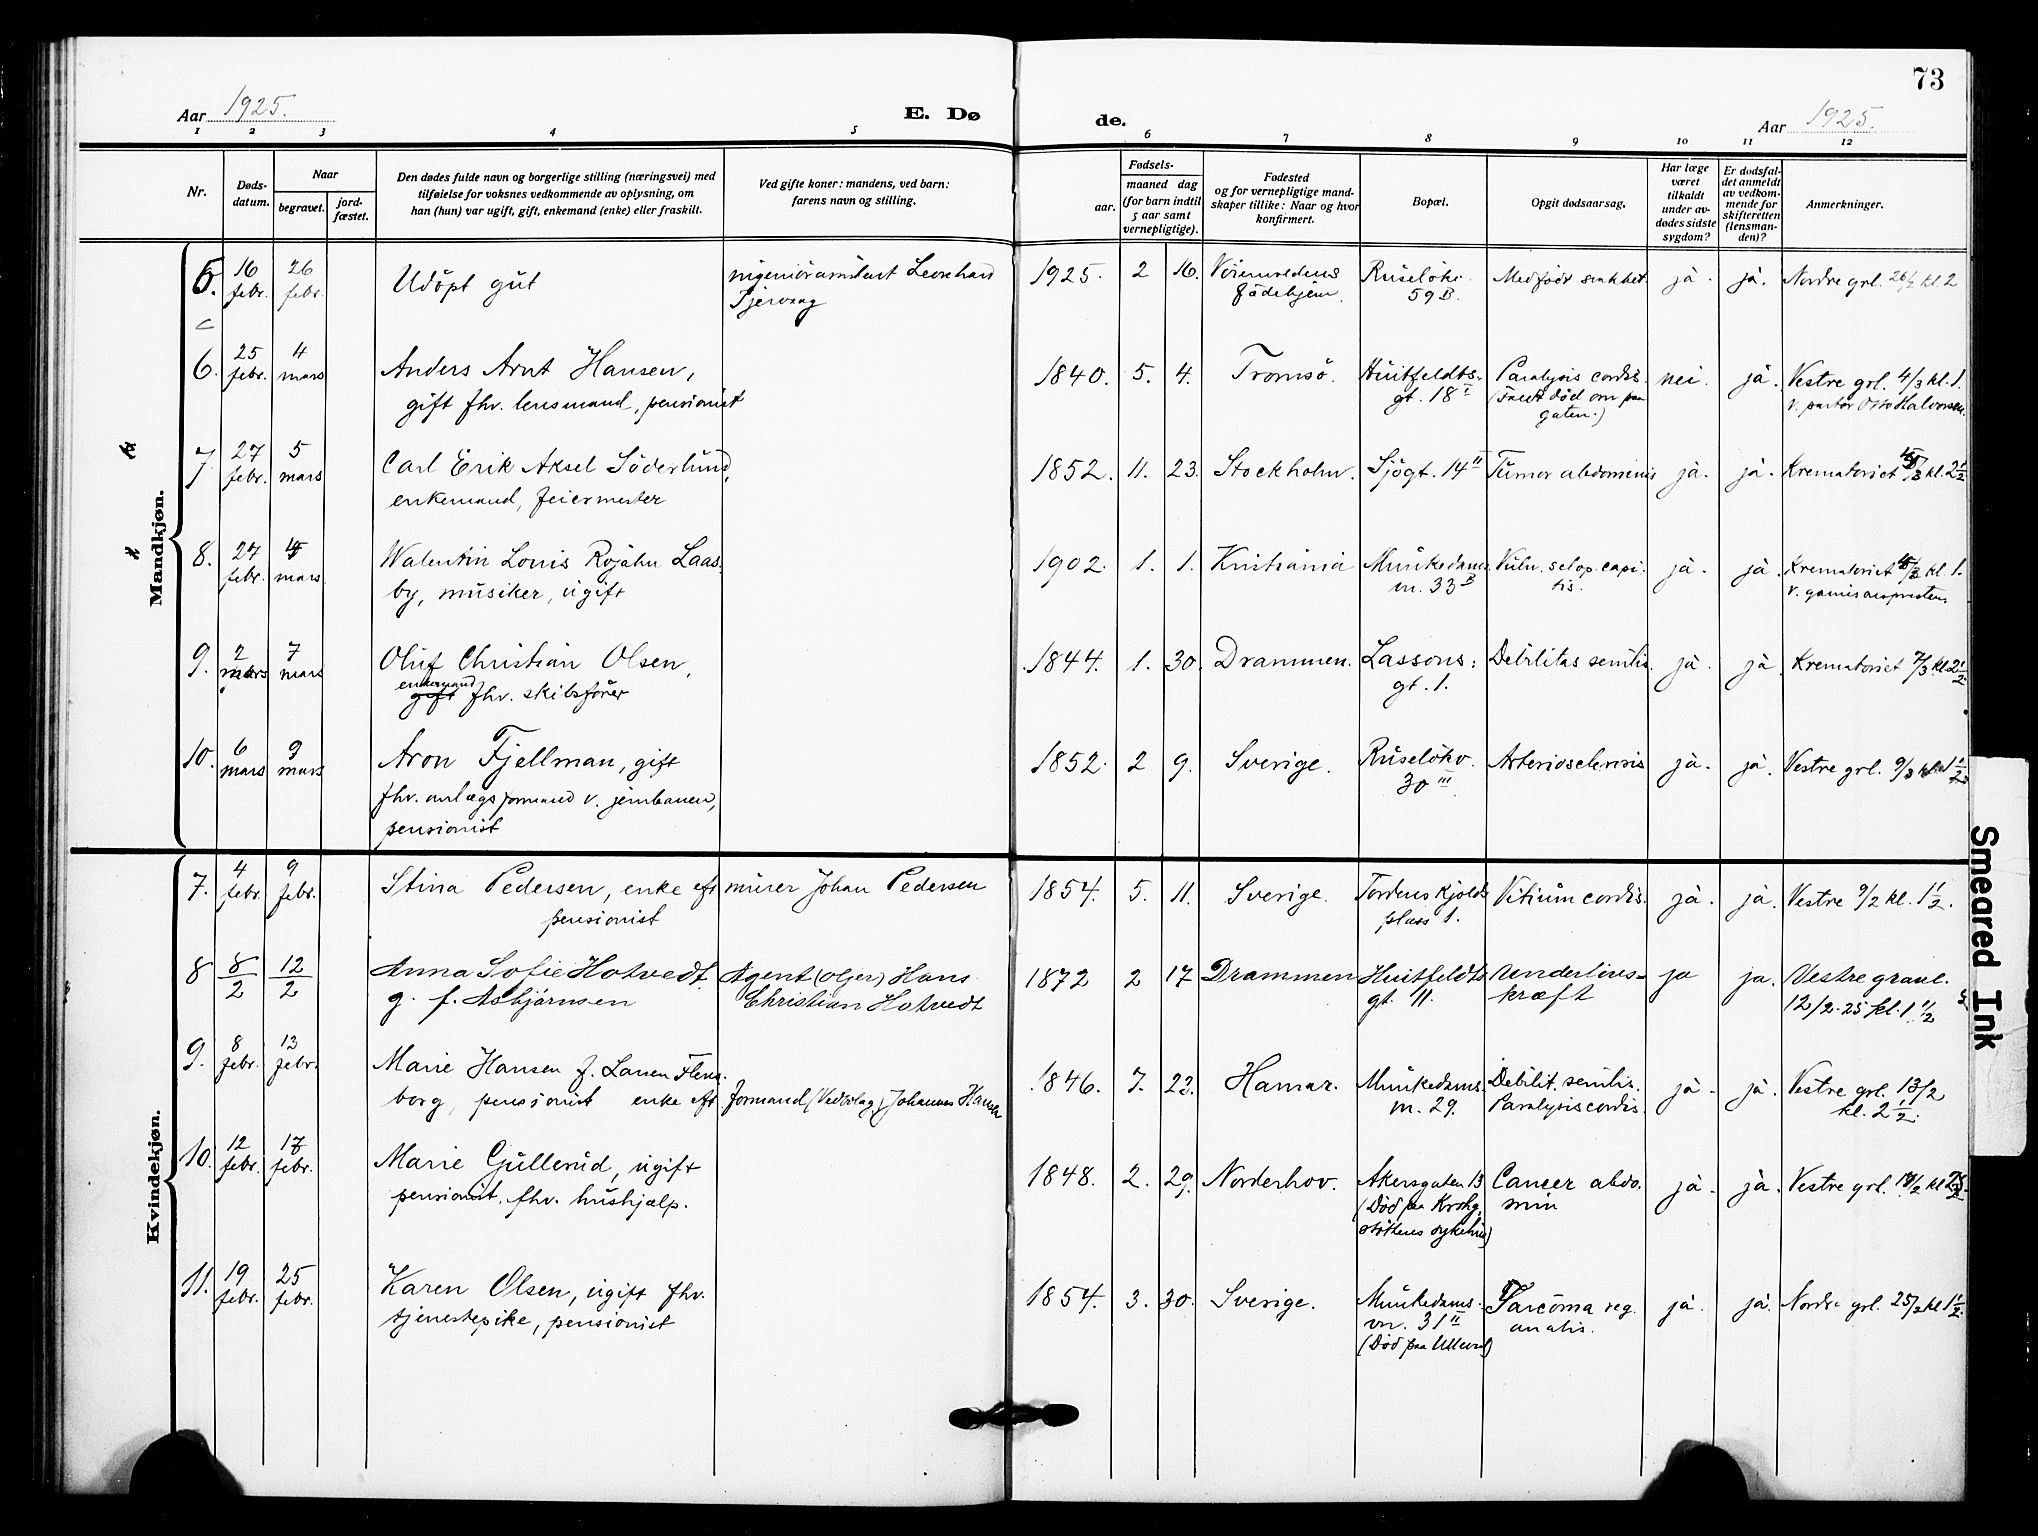 73
Aar 1925.
E. Dø
de.
Aar 1925.
1 2 3 4 5 6 7 8 9 10 11 12
Nr.
Døds-
datum.
Naar
begravet.
jord-
fæstet.
Den dødes fulde navn og borgerlige stilling (næringsvei) med
tilføielse for voksnes vedkommende av oplysning, om
han (hun) var ugift, gift, enkemand (enke) eller fraskilt.
Ved gifte koner: mandens, ved barn:
farens navn og stilling.
Fødsels-
aar.
maaned dag
(for barn indtil
5 aar samt
vernepligtige).
Fødested
og for vernepligtige mand-
skaper tillike: Naar og hvor
konfirmert.
Bopæl.
Opgit dødsaarsag.
Har læge
været
tilkaldt
under av-
dødes sidste
sygdom?
Er dødsfal-
det anmeldt
av vedkom-
mende for
skifteretten
(lensman-
den)?
Anmerkninger.
Mandkjøn.
5. 16 febr. 26 febr. Udöpt gut
Leonhard
1925. 2 16.
födehjem.
59 B.
Medfödt svakhet. ja. ja. Nordre grl. 26/2 kl. 2
6. 25 febr. 4 mars Anders Arnt Hansen,
gift fhv. lensmand, pensionist
1840. 5. 4. Tromsø. Huitfeldts-
gt. 18 I
Paralysis cordis.
(Falt död om paa
gaten.)
nei. ja. Vestre grl. 4/3 kl. 1.
v. pastor Otto Halvorsen.
7. 27 febr. 5 mars Carl Erik Aksel Söderlund,
enkemand, feiermester
1852. 11. 23. Stockholm. Sjögt. 14 II Tumor abdominis ja. ja. Krematoriet 5/3 kl. 2 1/2
8. 27 febr. mars Valentin Louis Rojahn Laas-
by, musiker, ugift
1902. 1. 1. Kristiania Munkedams-
vn. 33 B
Vuln. sclop. capi-
tis.
ja. ja. Krematoriet kl. 1.
v. garnisonspresten
9. 2 mars 7 mars Oluf Christian Olsen,
enkemand
gift fhv. skibsfører
1844. 1. 30. Drammen. Lassons:
gt. 1.
Debilitas senilis. ja. ja Krematoriet 7/3 kl. 2 1/2
10. 6 mars 9 mars Aron Fjellman, gift
fhv. anlægsformand v. jernbanen,
pensionist
1852. 2 9. Sverige. Ruselökv.
30 III
Arteriosclerosis ja. ja. Vestre grl. 9/3 kl. 1 1/2
Kvindekjøn.
7. 4 febr. 9 febr. Stina Pedersen, enke eft murer Johan Pedersen
pensionist
1854. 5. 11. Sverige. Tordenskjolds
plass 1.
Vitium cordis. ja. ja. Vestre 9/2 kl. 1 1/2.
8 8/2 12/2 Anna Sofie Hotvedt
g. f. Asbjørnsen
Agent (oljer) Hans
Christian Hotvedt
1872 2 17 Drammen Huitfeldts
gt. 11.
Underlivs-
kræft
ja ja. Vestre gravl.
12/2-25 kl. 1 1/2
9. 8 febr. 13 febr. Marie Hansen f. Larsen Flens-
borg, pensionist enke eft formand (Vedbolag) Johannes Hansen
1846. 7. 22. Hamar. Munkedams
vn. 29.
Debilit. senilis.
Paralysis cordis.
ja. ja. Vestre grl. 13/2
kl. 2 1/2.
10. 12 febr. 17 febr. Marie Gullerud, ugift
pensionist, fhv. hushjælp.
1848. 2. 29. Norderhov. Akersgaten 13
(Död paa Krohg-
støttens sykehus)
Cancer abdo-
min
ja. ja. Vestre grl.
11. 19 febr. 25 febr. Karen Olsen, ugift fhv.
tjenestepike, pensionist
1854. 3. 30. Sverige. Munkedams-
vn. 31 II
(Död paa Ullevaal)
Sarcoma reg.
analis.
ja. ja. Nordre grl. 25/2 kl 1 1/2.
Smeared Ink